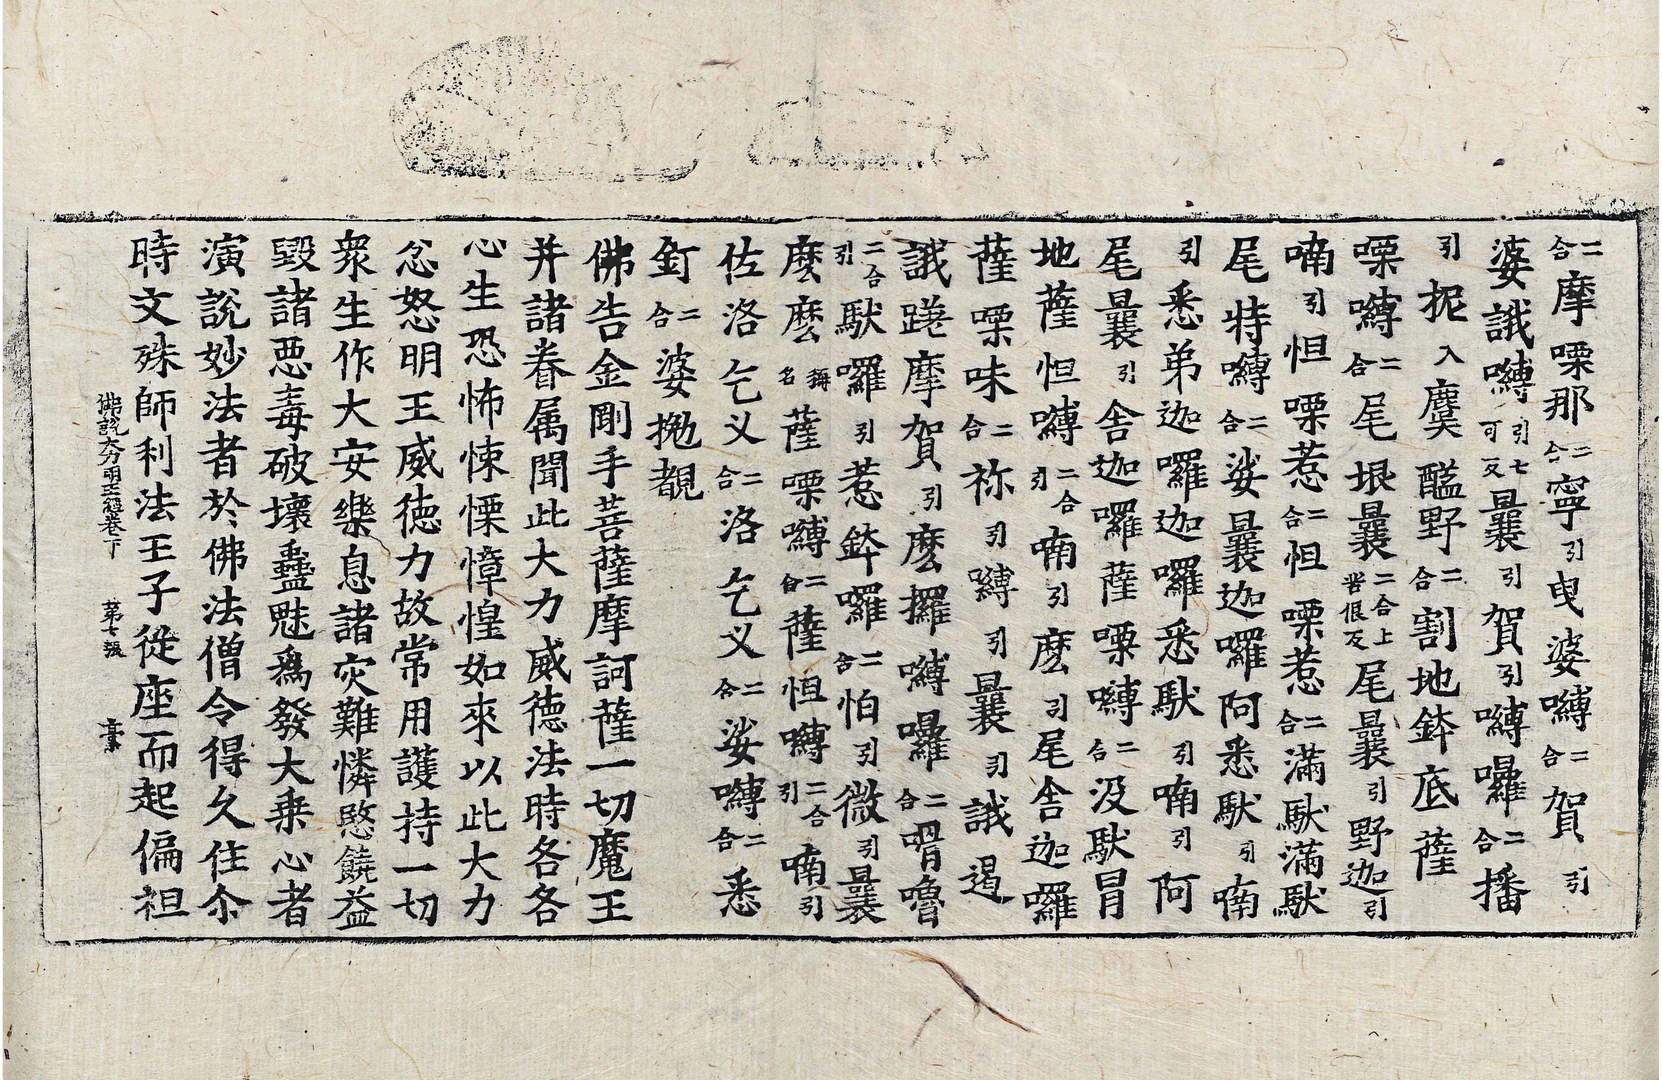 二合摩㗚那二合寧引曳婆嚩二合賀引
婆誐嚩引七可反曩引賀引嚩囉二合播
引抳入麌醯野二合割地鉢底薩
㗚嚩二合尾垠曩二合上岩恨反尾曩引野迦引
喃引怛㗚惹二合怛㗚惹二合滿馱滿馱
尾特嚩二合娑曩迦囉阿悉馱引喃
引悉弟迦囉迦囉悉馱引喃引阿
尾曩引舍迦囉薩㗚嚩二合沒馱冒
地薩怛嚩二合引喃引麽引尾舍迦囉
薩㗚味二合祢引嚩引曩引誐遏
誐蹉摩賀引麽攞嚩囉二合㗭嚕
二合引馱囉引惹鉢囉二合怕引微引曩
麽麽稱名薩㗚嚩二合薩怛嚩二合引喃引
佐洛乞叉二合洛乞叉二合娑嚩二合悉
釘二合婆拋覩
佛告金剛手菩薩摩訶薩一切魔王
并諸眷属聞此大力威徳法時各各
心生恐怖悚慄慞惶如來以此大力
忿怒明王威徳力故常用護持一切
衆生作大安樂息諸灾難憐愍饒益
毀諸惡毒破壞蠱魅爲發大乗心者
演說妙法者於佛法僧令得久住尒
佛說大力明王經卷下　第七張　章
時文殊師利法王子從座而起偏袒